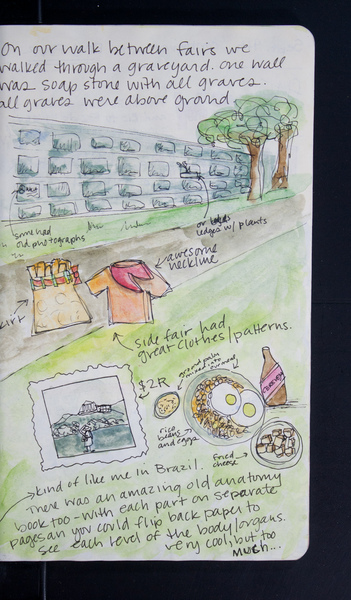 On our walk between fairs we
walked through a graveyard. One wall
was soap stone with all graves.
all graves were above ground
some had
old photographs
or
ledges w/ plants
awesome
neckline
skirt
side fair had
great clothes/patterns.
$2R
ground palm
mixed into
rice
beans
and eggs
fried
cheese
kind of like me in Brazil.
There was an amazing old anatomy
book too - with each part on separate
pages an you could flip back paper to
see each level of the body/organs.
very cool, but too
much...